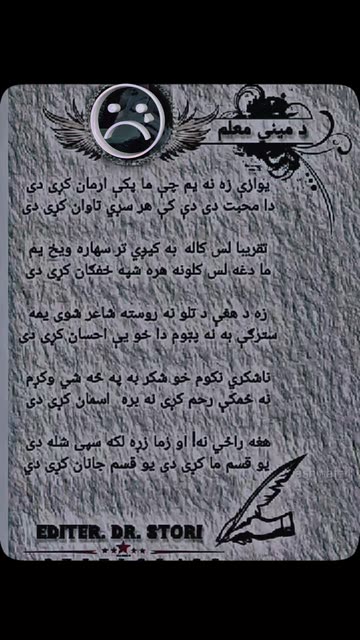 د مينې معلم
يوازې زه نه يم چې ما پکې ارمان کړی دی
دا محبت دی دې کې هر سړي تاوان کړی دی
تقريبا لس کاله به کيږي تر سهاره ويخ يم
ما دغه لس کلونه هره شپه خفګان کړی دی
زه د هغې د تلو نه روسته شاعر شوی يمه
سترګې به نه پټوم دا خو يې احسان کړی دی
ناشکري نکوم خو شکر به په څه شي وکړم
نه ځمکې رحم کړی نه بره اسمان کړی دی
هغه راځي نه او زما زړه لکه سپی شله دی
يو قسم ما کړی دی يو قسم جانان کړی دي
EDITER. DR. STORI